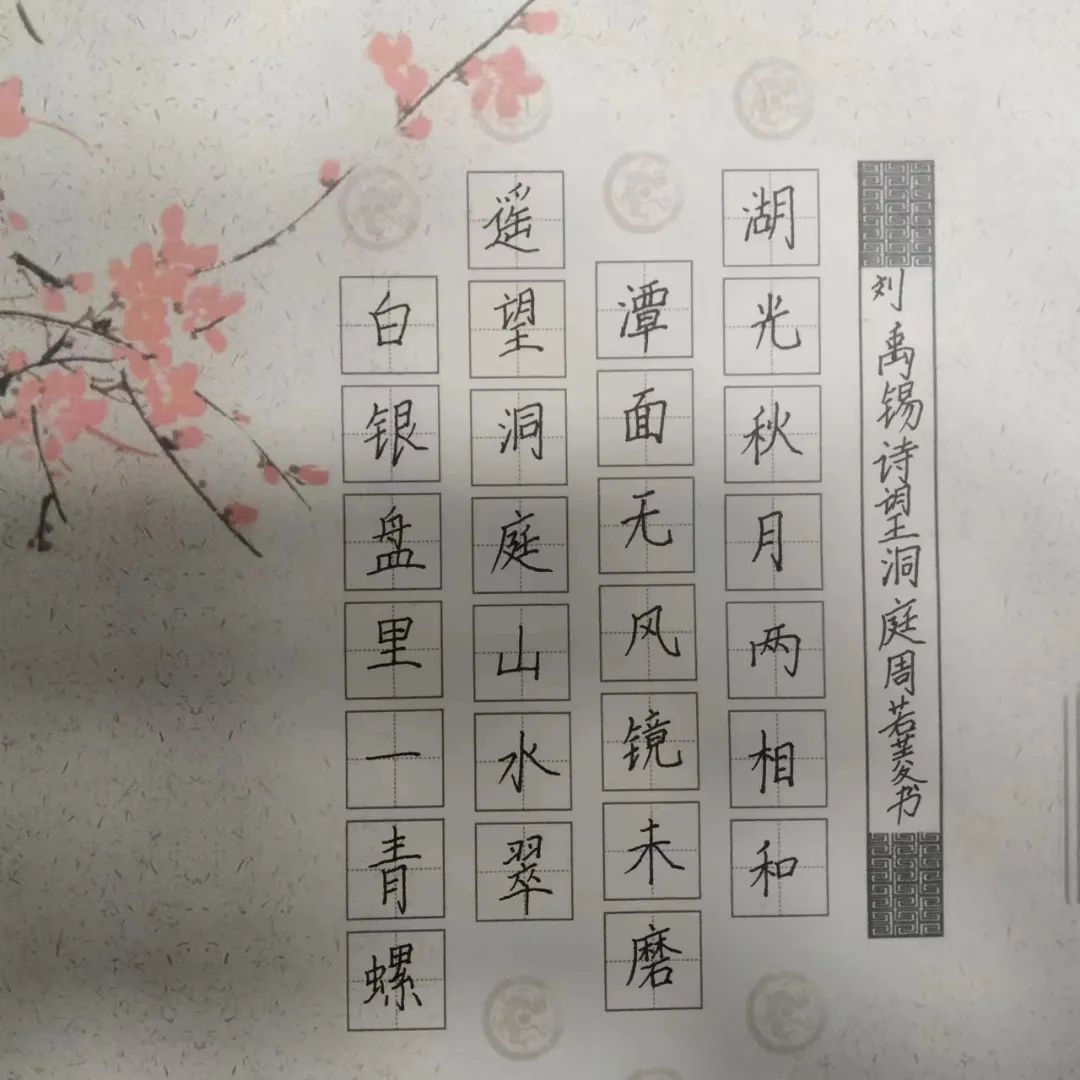 刘禹锡诗望洞庭周若菱书
湖光秋月两相和
潭面无风镜未磨
遥望洞庭山水翠
白银盘里一青螺